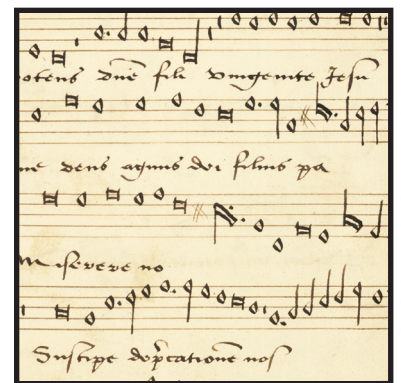 otens dne fili vnigenite Jesu
ne deus agnus dei filius pa
Miserere no
Suscipe dep̄catione nos